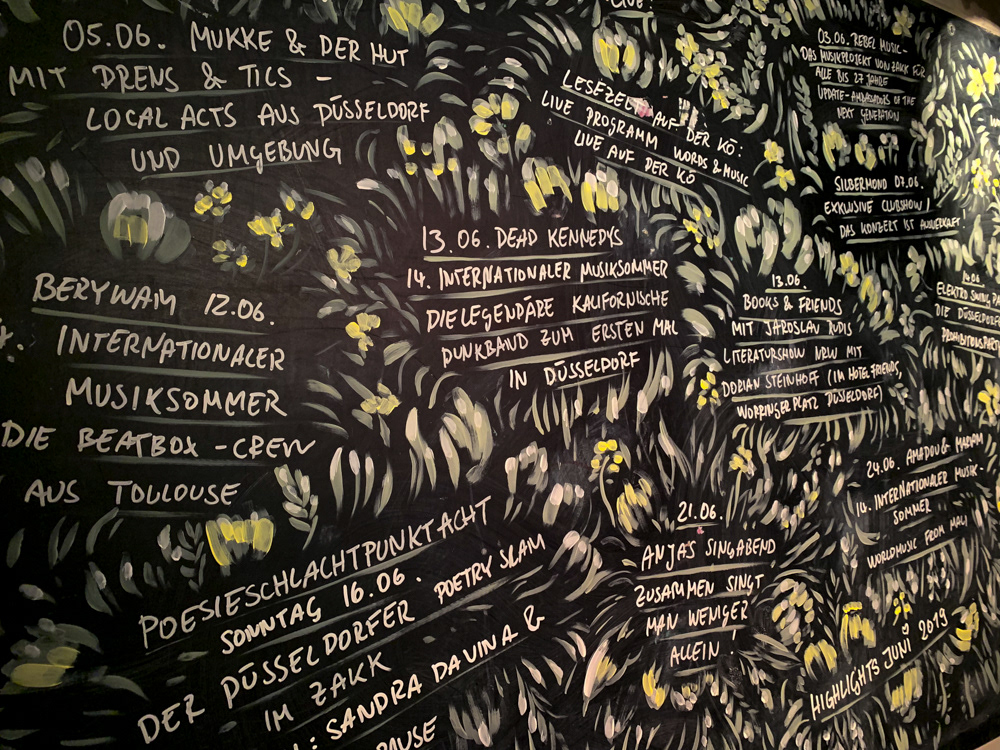 05.06. MUKKE & DER HUT
MIT DRENS & TICS –
LOCAL ACTS AUS DÜSSELDORF
UND UMGEBUNG
LIVE!
LESEZELT AUF DER KÖ:
LIVE PROGRAMM WORDS & MUSIC
LIVE AUF DER KÖ
03.06. REBEL MUSIC –
DAS MUSIKPROJEKT VON ZAKK FÜR
ALLE BIS 27 JAHRE
UPDATE – AMBASSADORS OF THE
NEXT GENERATION
SILBERMOND 07.06.
EXKLUSIVE CLUBSHOW!
DAS KONZERT IST AUSVERKAUFT
BERYWAM 12.06.
INTERNATIONALER
MUSIKSOMMER
DIE BEATBOX-CREW
AUS TOULOUSE
13.06. DEAD KENNEDYS
14. INTERNATIONALER MUSIKSOMMER
DIE LEGENDÄRE KALIFORNISCHE
PUNKBAND ZUM ERSTEN MAL
IN DÜSSELDORF
13.06.
BOOKS & FRIENDS
MIT JAROSLAV RUDIS
LITERATURSHOW NRW MIT
DORIAN STEINHOFF (IM HOTEL FRIENDS,
WORRINGER PLATZ DÜSSELDORF)
14.06
ELEKTRO SWING
DIE DÜSSELDORF
PROHIBITIONSPART
POESIESCHLACHTPUNKTACHT
SONNTAG 16.06.
DER DÜSSELDORFER POETRY SLAM
IM ZAKK
SANDRA DA VINA &
21.06.
ANJAS SINGABEND
ZUSAMMEN SINGT
MAN WENIGER
ALLEIN!
24.06. AMADOU & MARIAM
14. INTERNATIONALER MUSIK-
SOMMER
WORLDMUSIC FROM MALI
HIGHLIGHTS JUNI 2019